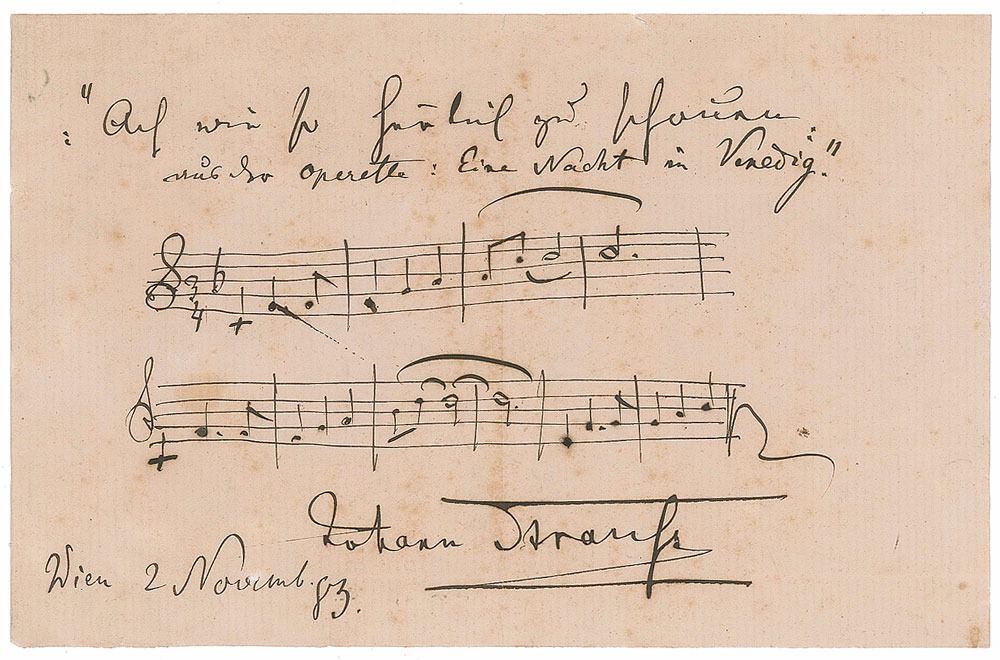 : "Ach wie so herrlich zu schauen :
aus der Operette: Eine Nacht in Venedig."
3
4
Johann Strauss
Wien 2 Novemb. 83.